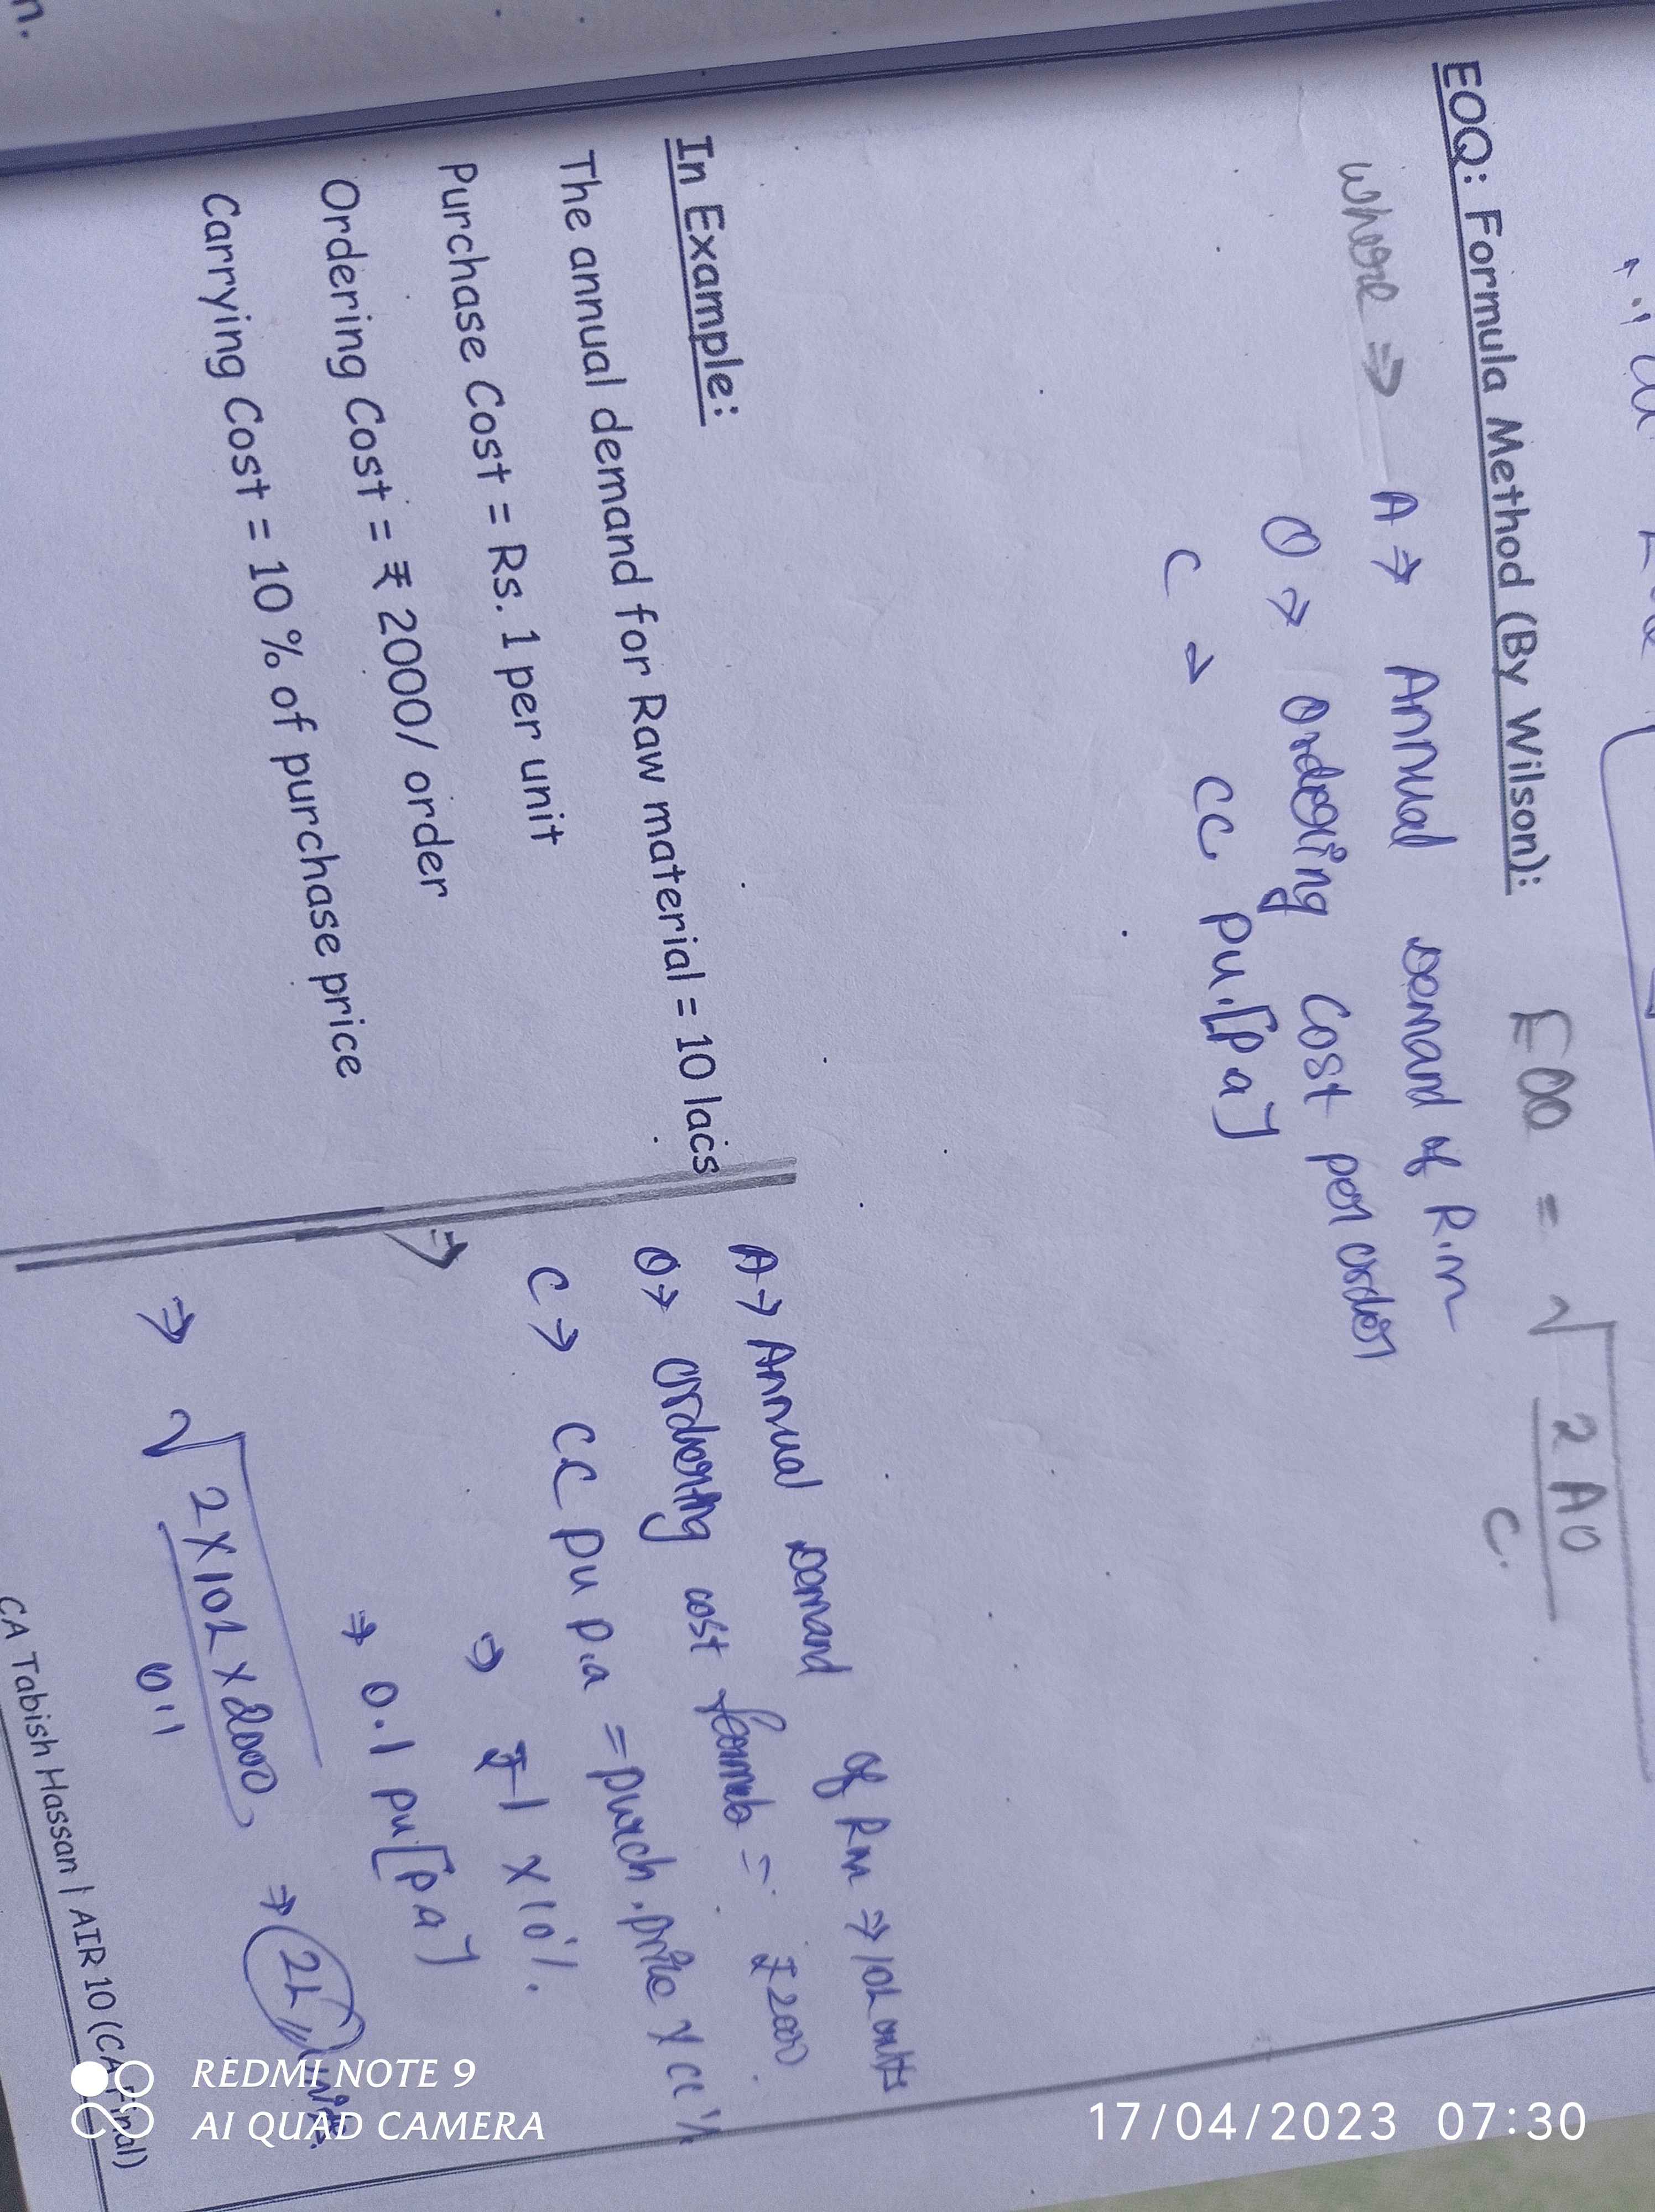 EOQ: Formula Method (By Wilson): EOQ = √2AO
C.
where ⇒ A → Annual Demand of R.M
O → Ordering Cost per order
C → CC pu.[pa]
In Example:
The annual demand for Raw material = 10 lacs
Purchase Cost = Rs. 1 per unit
Ordering Cost = ₹ 2000/ order
Carrying Cost = 10 % of purchase price
A → Annual Demand of RM ⇒ 10L units
O → Ordering cost = ₹2000
C → CC pu p.a = purch. price × CC %
⇒ ₹1 × 10%.
⇒ 0.1 pu[pa]
⇒ √2×10L×2000 ⇒ 2L units.
0.1
CA Tabish Hassan | AIR 10 (CA Final)
REDMI NOTE 9
AI QUAD CAMERA
17/04/2023 07:30